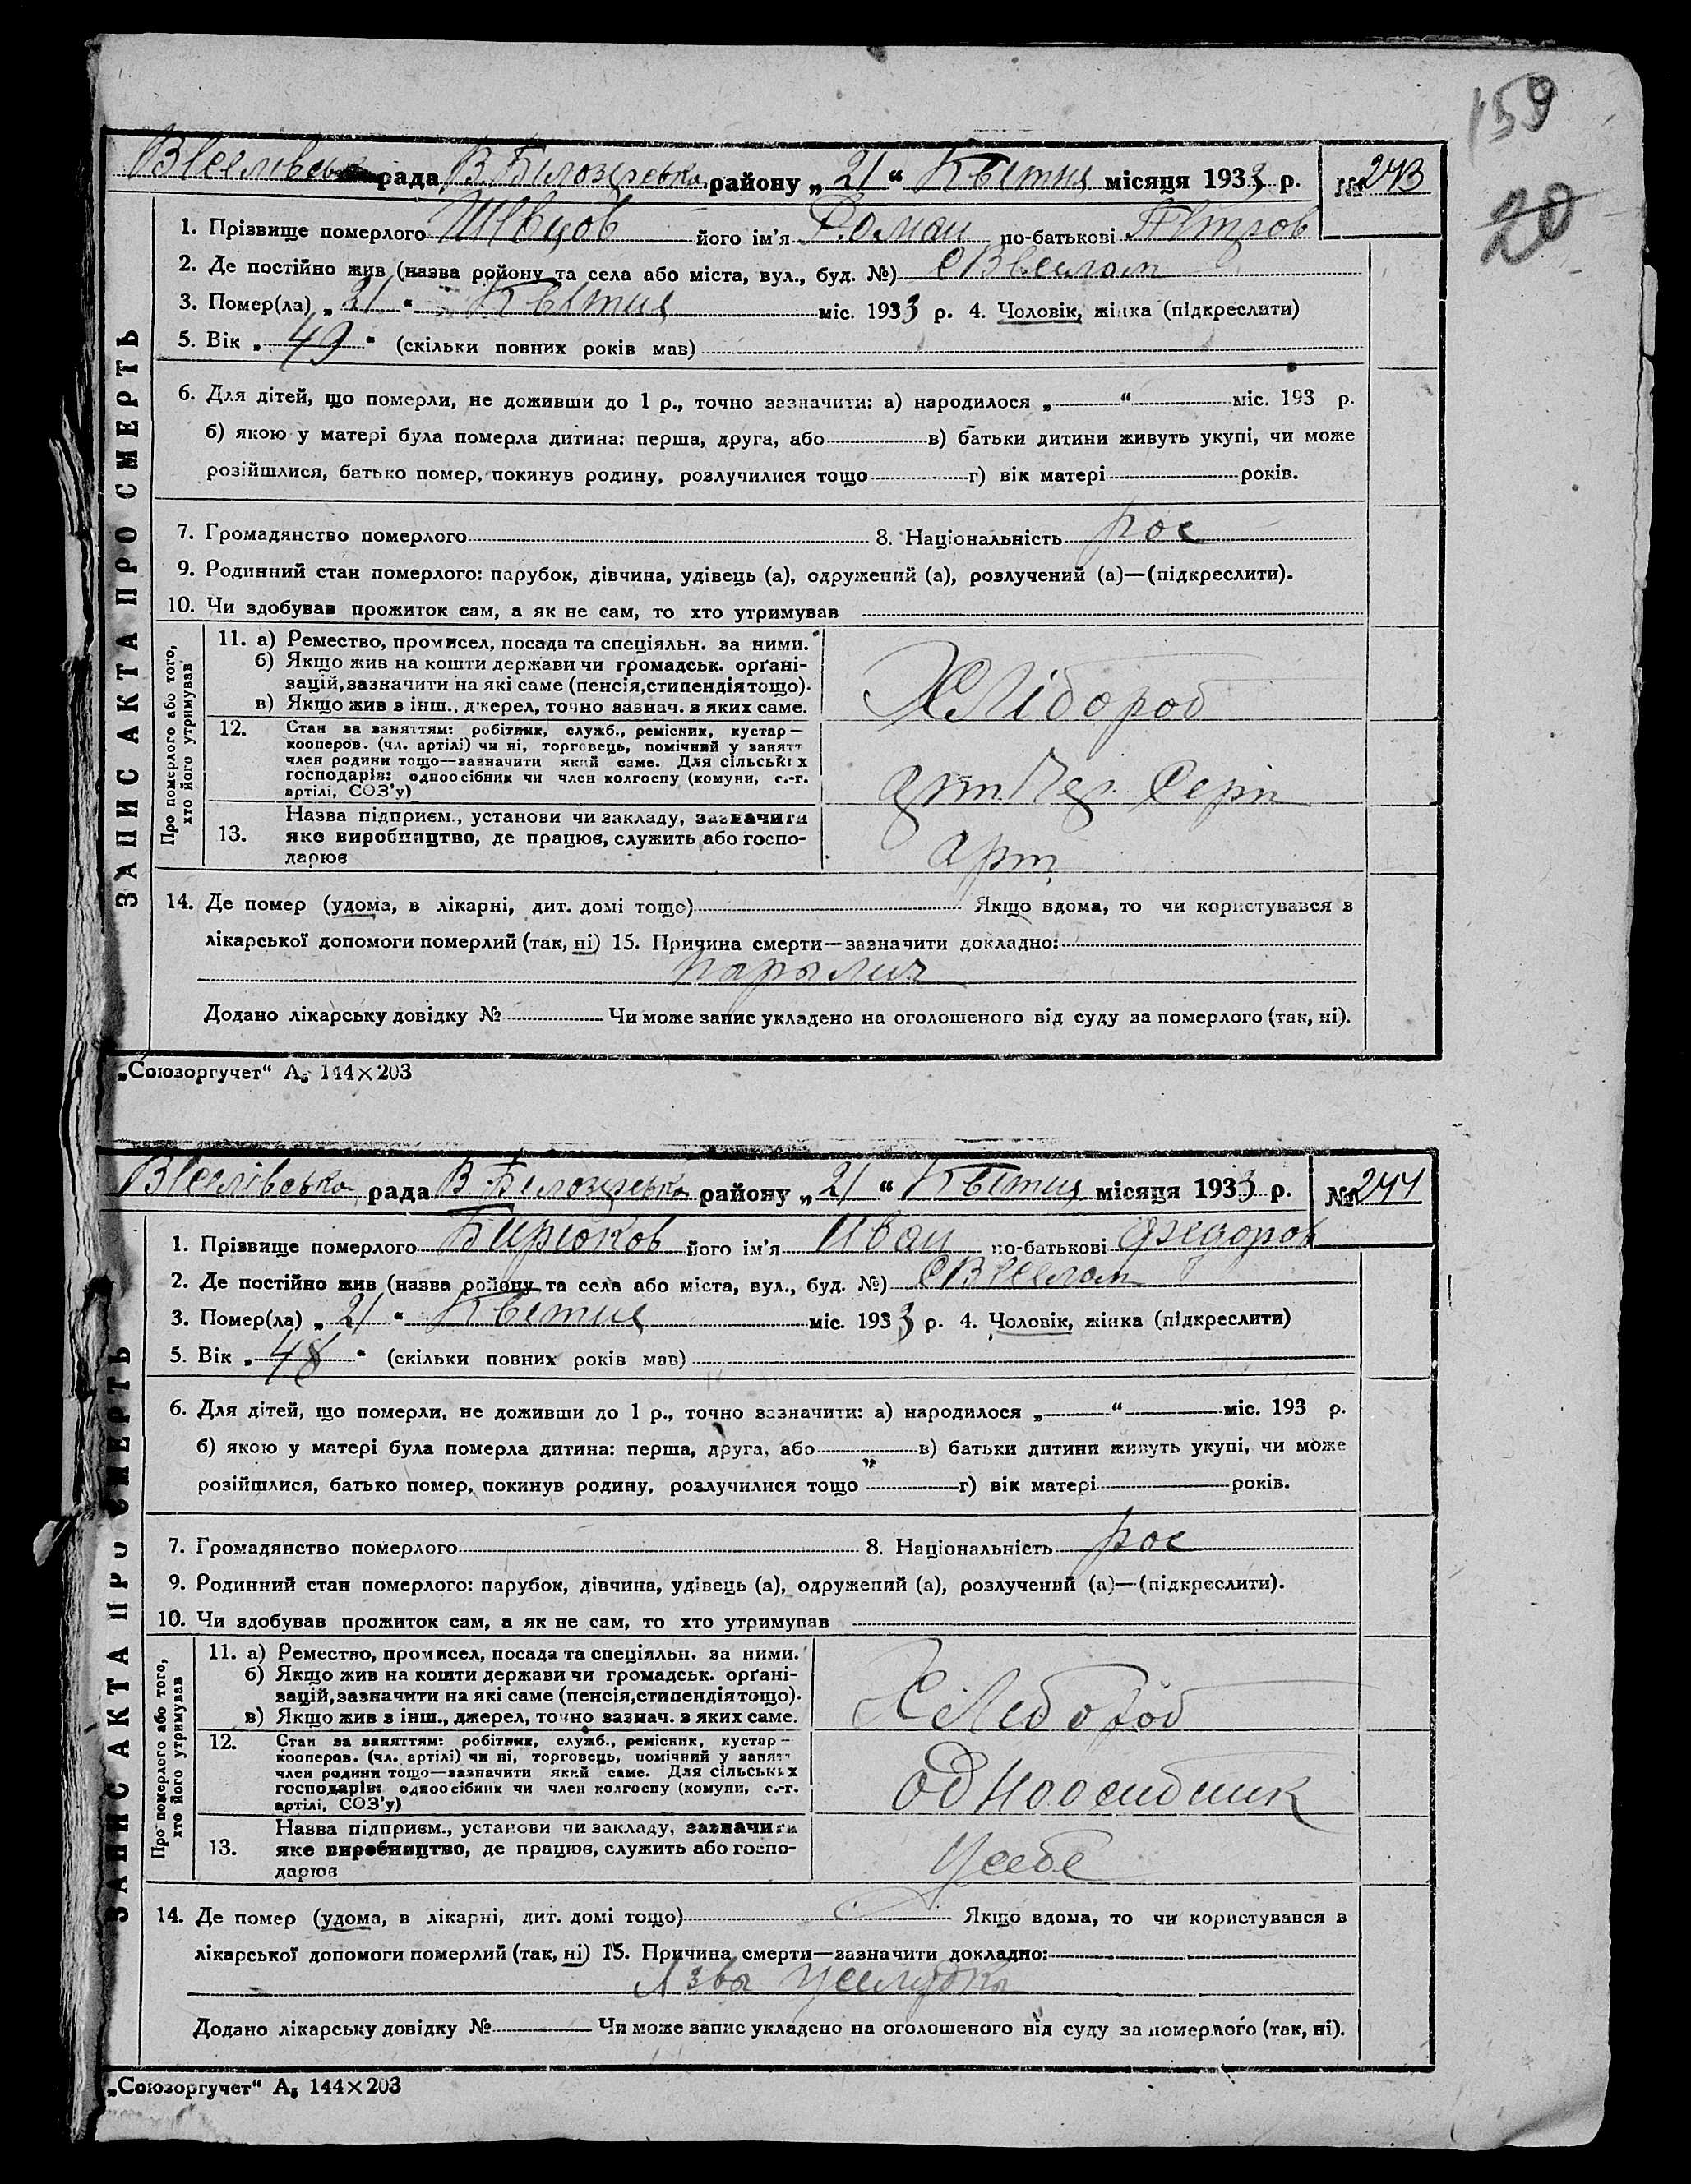 159
20
рада В. Білозірська району „21“ Квітня місяця 1933 р. № 243
ЗАПИС АКТА ПРО СМЕРТЬ
1. Прізвище померлого Швцов його ім'я Роман по-батькові Петров
2. Де постійно жив (назва ройону та села або міста, вул., буд. №)
3. Помер(ла) „21“ Квітня міс. 1933 р. 4. Чоловік, жінка (підкреслити)
5. Вік „49“ (скільки повних років мав)
6. Для дітей, що померли, не доживши до 1 р., точно зазначити: а) народилося „ “ міс. 193 р.
б) якою у матері була померла дитина: перша, друга, або в) батьки дитини живуть укупі, чи може
розійшлися, батько помер, покинув родину, розлучилися тощо г) вік матері років.
7. Громадянство померлого 8. Національність рос
9. Родинний стан померлого: парубок, дівчина, удівець (а), одружений (а), розлучений (а)—(підкреслити).
10. Чи здобував прожиток сам, а як не сам, то хто утримував
Про померлого або того,
хто його утримував
11. а) Ремество, промисел, посада та спеціяльн. за ними.
б) Якщо жив на кошти держави чи громадськ. орґані-
зацій, зазначити на які саме (пенсія, стипендія тощо).
в) Якщо жив з інш., джерел, точно зазнач. з яких саме.
Хлібороб
12. Стан за заняттям: робітник, служб., ремісник, кустар—
кооперов. (чл. артілі) чи ні, торговець, помічний у занятт
член родини тощо—зазначити який саме. Для сільських
господарів: одноосібник чи член колгоспу (комуни, с.-г.
артілі, СОЗ'у)
Серп
13. Назва підприєм., установи чи закладу, зазначити
яке виробництво, де працює, служить або госпо-
дарює
арт
14. Де помер (удома, в лікарні, дит. домі тощо) Якщо вдома, то чи користувався в
лікарської допомоги померлий (так, ні) 15. Причина смерти—зазначити докладно:
паралич
Додано лікарську довідку № Чи може запис укладено на оголошеного від суду за померлого (так, ні).
„Союзоргучет“ А5 144×203
рада В. Білозірська району „21“ Квітня місяця 1933 р. № 244
ЗАПИС АКТА ПРО СМЕРТЬ
1. Прізвище померлого Бирюков його ім'я Иван по-батькові Федоров
2. Де постійно жив (назва ройону та села або міста, вул., буд. №)
3. Помер(ла) „21“ Квітня міс. 1933 р. 4. Чоловік, жінка (підкреслити)
5. Вік „48“ (скільки повних років мав)
6. Для дітей, що померли, не доживши до 1 р., точно зазначити: а) народилося „ “ міс. 193 р.
б) якою у матері була померла дитина: перша, друга, або в) батьки дитини живуть укупі, чи може
розійшлися, батько помер, покинув родину, розлучилися тощо г) вік матері років.
7. Громадянство померлого 8. Національність рос
9. Родинний стан померлого: парубок, дівчина, удівець (а), одружений (а), розлучений (а)—(підкреслити).
10. Чи здобував прожиток сам, а як не сам, то хто утримував
Про померлого або того,
хто його утримував
11. а) Ремество, промисел, посада та спеціяльн. за ними.
б) Якщо жив на кошти держави чи громадськ. орґані-
зацій, зазначити на які саме (пенсія, стипендія тощо).
в) Якщо жив з інш., джерел, точно зазнач. з яких саме.
12. Стан за заняттям: робітник, служб., ремісник, кустар—
кооперов. (чл. артілі) чи ні, торговець, помічний у занятт
член родини тощо—зазначити який саме. Для сільських
господарів: одноосібник чи член колгоспу (комуни, с.-г.
артілі, СОЗ'у)
одноосибник
13. Назва підприєм., установи чи закладу, зазначити
яке виробництво, де працює, служить або госпо-
дарює
Усебе
14. Де помер (удома, в лікарні, дит. домі тощо) Якщо вдома, то чи користувався в
лікарської допомоги померлий (так, ні) 15. Причина смерти—зазначити докладно:
Язва
Додано лікарську довідку № Чи може запис укладено на оголошеного від суду за померлого (так, ні).
„Союзоргучет“ А5 144×203